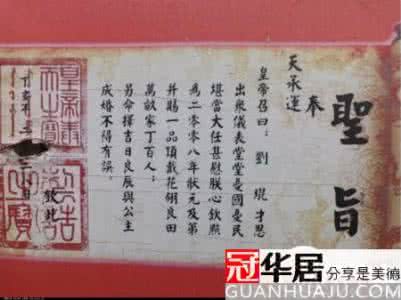 聖旨
奉
天承運
皇帝召曰：劉琨才思
出衆儀表堂堂憂國憂民
堪當大任甚慰朕心欽點
為二〇〇八年狀元及第
并賜一品頂戴花翎良田
萬畝家丁百人；
另命擇吉日良辰與公主
成婚不得有誤。
欽此
冠华居 分享是美德
GUANHUAJU.COM